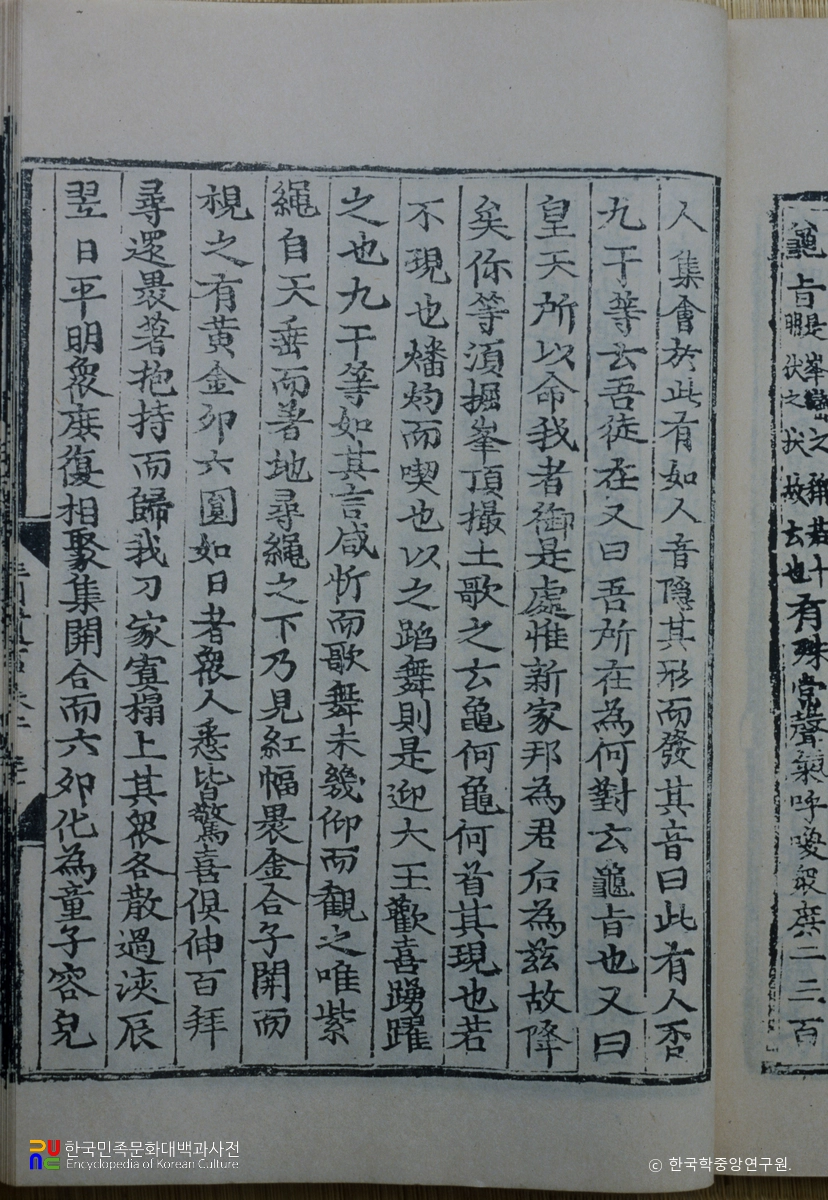 龜旨
是峯巒之稱若十
明伏之狀故云也
有殊常聲氣呼喚衆庶二三百
人集會於此有如人音隱其形而發其音曰此有人否
九干等云吾徒在又曰吾所在為何對云龜旨也又曰
皇天所以命我者御是處惟新家邦為君后為茲故降
矣你等湏掘峯頂撮土歌之云龜何龜何首其現也若
不現也燔灼而喫也以之蹈舞則是迎大王歡喜踴躍
之也九干等如其言咸忻而歌舞未幾仰而觀之唯紫
繩自天垂而着地尋繩之下乃見紅幅裹金合子開而
視之有黃金卵六圓如日者衆人悉皆驚喜俱伸百拜
尋還裹著抱持而歸我刀家寘榻上其衆各散過浹辰
翌日平明衆庶復相聚集開合而六卵化為童子容皃
한국민족문화대백과사전
Encyclopedia of Korean Culture
© 한국학중앙연구원.